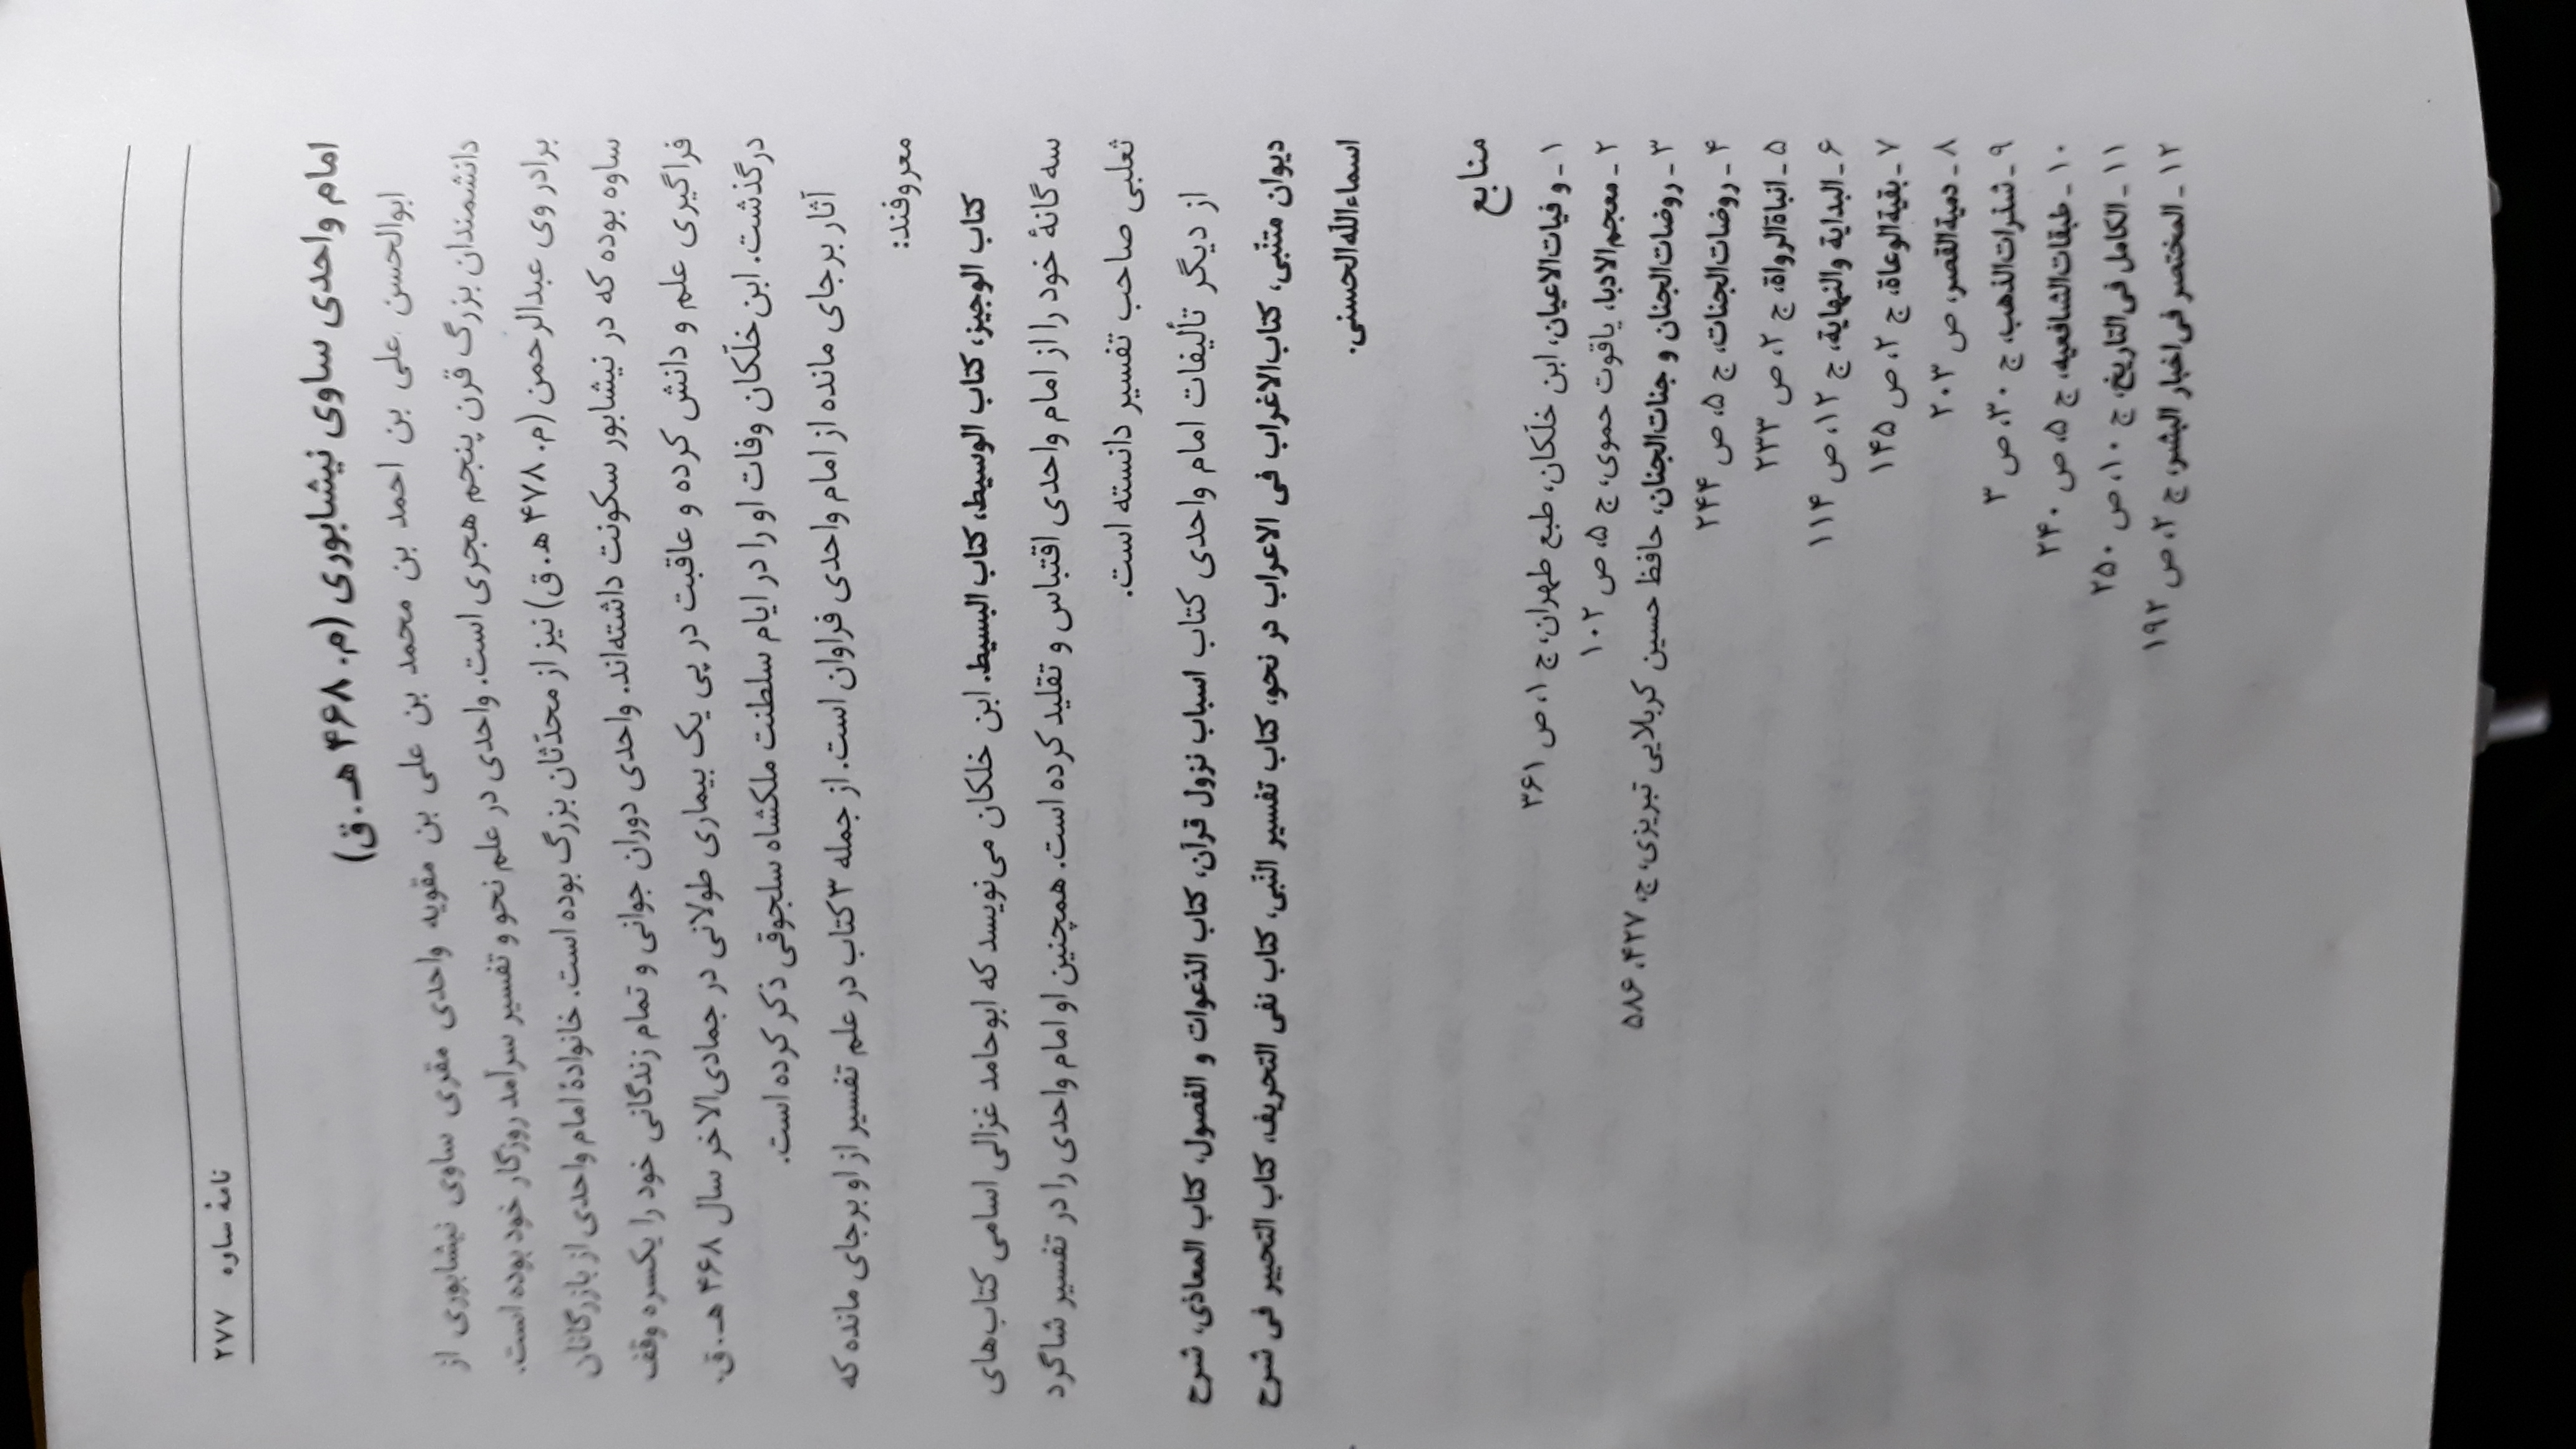 نامهٔ ساوه ۲۷۷
امام واحدی ساوی نیشابوری (م. ۴۶۸ هـ.ق)
ابوالحسن علی بن احمد بن محمد بن علی بن مقویه واحدی مقری ساوی نیشابوری از
دانشمندان بزرگ قرن پنجم هجری است. واحدی در علم نحو و تفسیر سرآمد روزگار خود بوده است.
برادر وی عبدالرحمن (م. ۴۷۸ هـ.ق) نیز از محدّثان بزرگ بوده است. خانوادهٔ امام واحدی از بازرگانان
ساوه بوده که در نیشابور سکونت داشته‌اند. واحدی دوران جوانی و تمام زندگانی خود را یکسره وقف
فراگیری علم و دانش کرده و عاقبت در پی یک بیماری طولانی در جمادی‌الاخر سال ۴۶۸ هـ.ق.
درگذشت. ابن خلّکان وفات او را در ایام سلطنت ملکشاه سلجوقی ذکر کرده است.
آثار برجای مانده از امام واحدی فراوان است. از جمله ۳ کتاب در علم تفسیر از او برجای مانده که
معروفند:
کتاب الوجیز، کتاب الوسیط، کتاب البسیط. ابن خلکان می‌نویسد که ابوحامد غزالی اسامی کتاب‌های
سه گانهٔ خود را از امام واحدی اقتباس و تقلید کرده است. همچنین او امام واحدی را در تفسیر شاگرد
ثعلبی صاحب تفسیر دانسته است.
از دیگر تألیفات امام واحدی کتاب اسباب نزول قرآن، کتاب الدعوات و الفصول، کتاب المغاذی، شرح
دیوان متنبّی، کتاب الاغراب فی الاعراب در نحو، کتاب تفسیر النّبی، کتاب نفی التحریف، کتاب التحبیر فی شرح
اسماءاللّه الحسنی.
منابع
۱ـ وفیات‌الاعیان، ابن خلّکان، طبع طهران، ج ۱، ص ۳۶۱
۲ـ معجم‌الادبا، یاقوت حموی، ج ۵، ص ۱۰۲
۳ـ روضات‌الجنان و جنات‌الجنان، حافظ حسین کربلایی تبریزی، ج، ۴۲۷، ۵۸۶
۴ـ روضات‌الجنات، ج ۵، ص ۲۴۴
۵ـ انباةالرواة، ج ۲، ص ۲۳۳
۶ـ البدایة والنهایة، ج ۱۲، ص ۱۱۴
۷ـ بقیةالوعاة، ج ۲، ص ۱۴۵
۸ـ دمیةالقصر، ص ۲۰۳
۹ـ شذرات‌الذهب، ج ۳۰، ص ۳
۱۰ـ طبقات‌الشافعیه، ج ۵، ص ۲۴۰
۱۱ـ الکامل فی‌التاریخ، ج ۱۰، ص ۲۵۰
۱۲ـ المختصر فی اخبار البشر، ج ۲، ص ۱۹۲